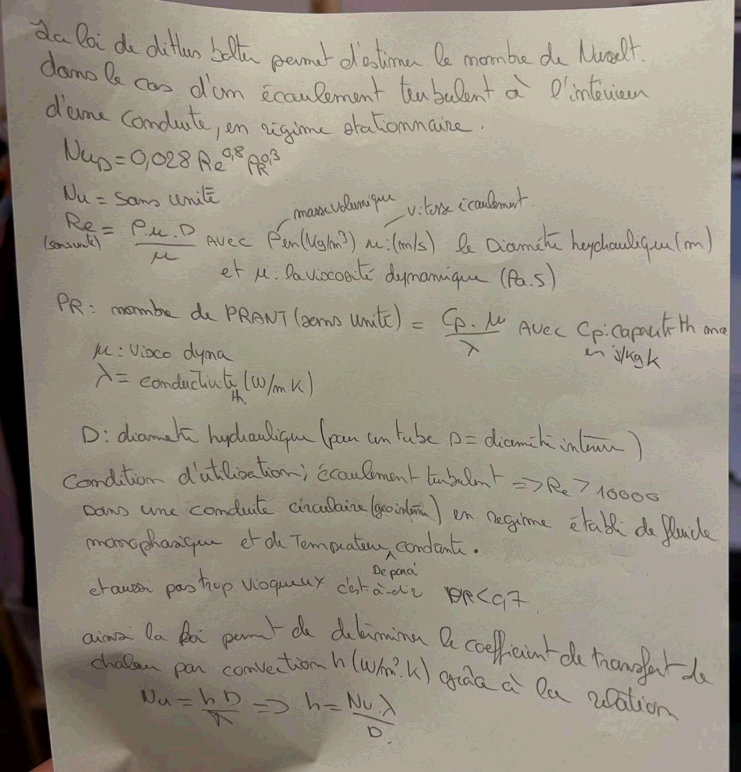 La loi de dittus bolter permet d'estimer le nombre de Nusselt.
dans le cas d'un écoulement turbulent à l'intérieur
d'une conduite, en régime stationnaire.
Nu_D = 0,028 Re^0,8 PR^0,3
Nu = sans unité
masse volumique vitesse écoulement
Re = ρu.D/μ AVEC ρ en (kg/m³) u : (m/s) le Diamètre hydraulique (m)
(sans unité)
et μ : la viscosité dynamique (Pa.s)
PR : nombre de PRANT (sans unité) = Cp.μ/λ AVEC Cp : capacité th
en J/kg K
μ : visco dyna
λ = conductivité th. (W/m K)
D : diamètre hydraulique (pour un tube D = diamètre interne)
Condition d'utilisation ; écoulement turbulent => Re > 10000
Dans une conduite circulaire en régime établi de fluide
monophasique et de Température De paroi constante.
et aussi pas trop visqueux c'est-à-dire PR < 0,7
ainsi la loi permet de déterminer le coefficient de transfert de
chaleur par convection h (W/m².K) grâce à la relation
Nu = hD/λ => h = Nu.λ/D.